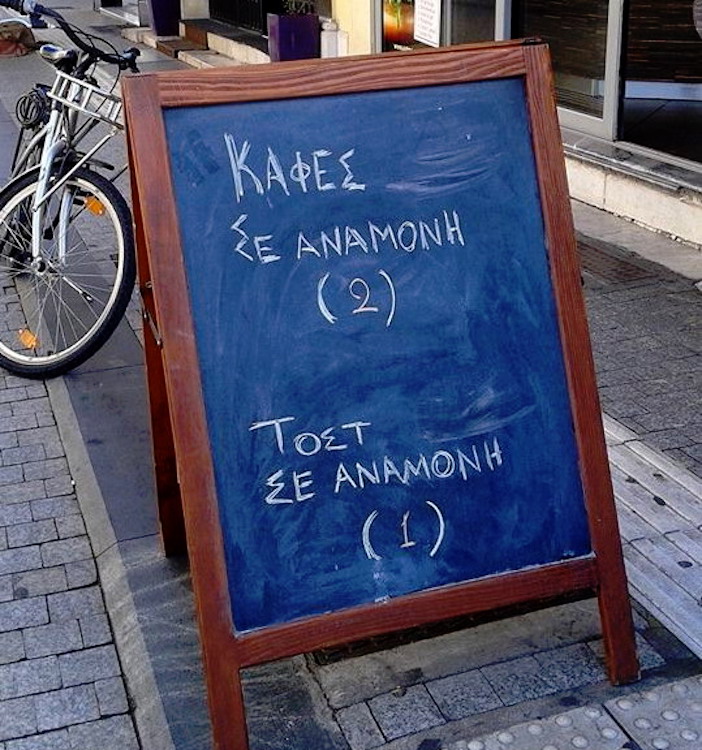 ΚΑΦΕΣ
ΣΕ ΑΝΑΜΟΝΗ
(2)
ΤΟΣΤ
ΣΕ ΑΝΑΜΟΝΗ
(1)